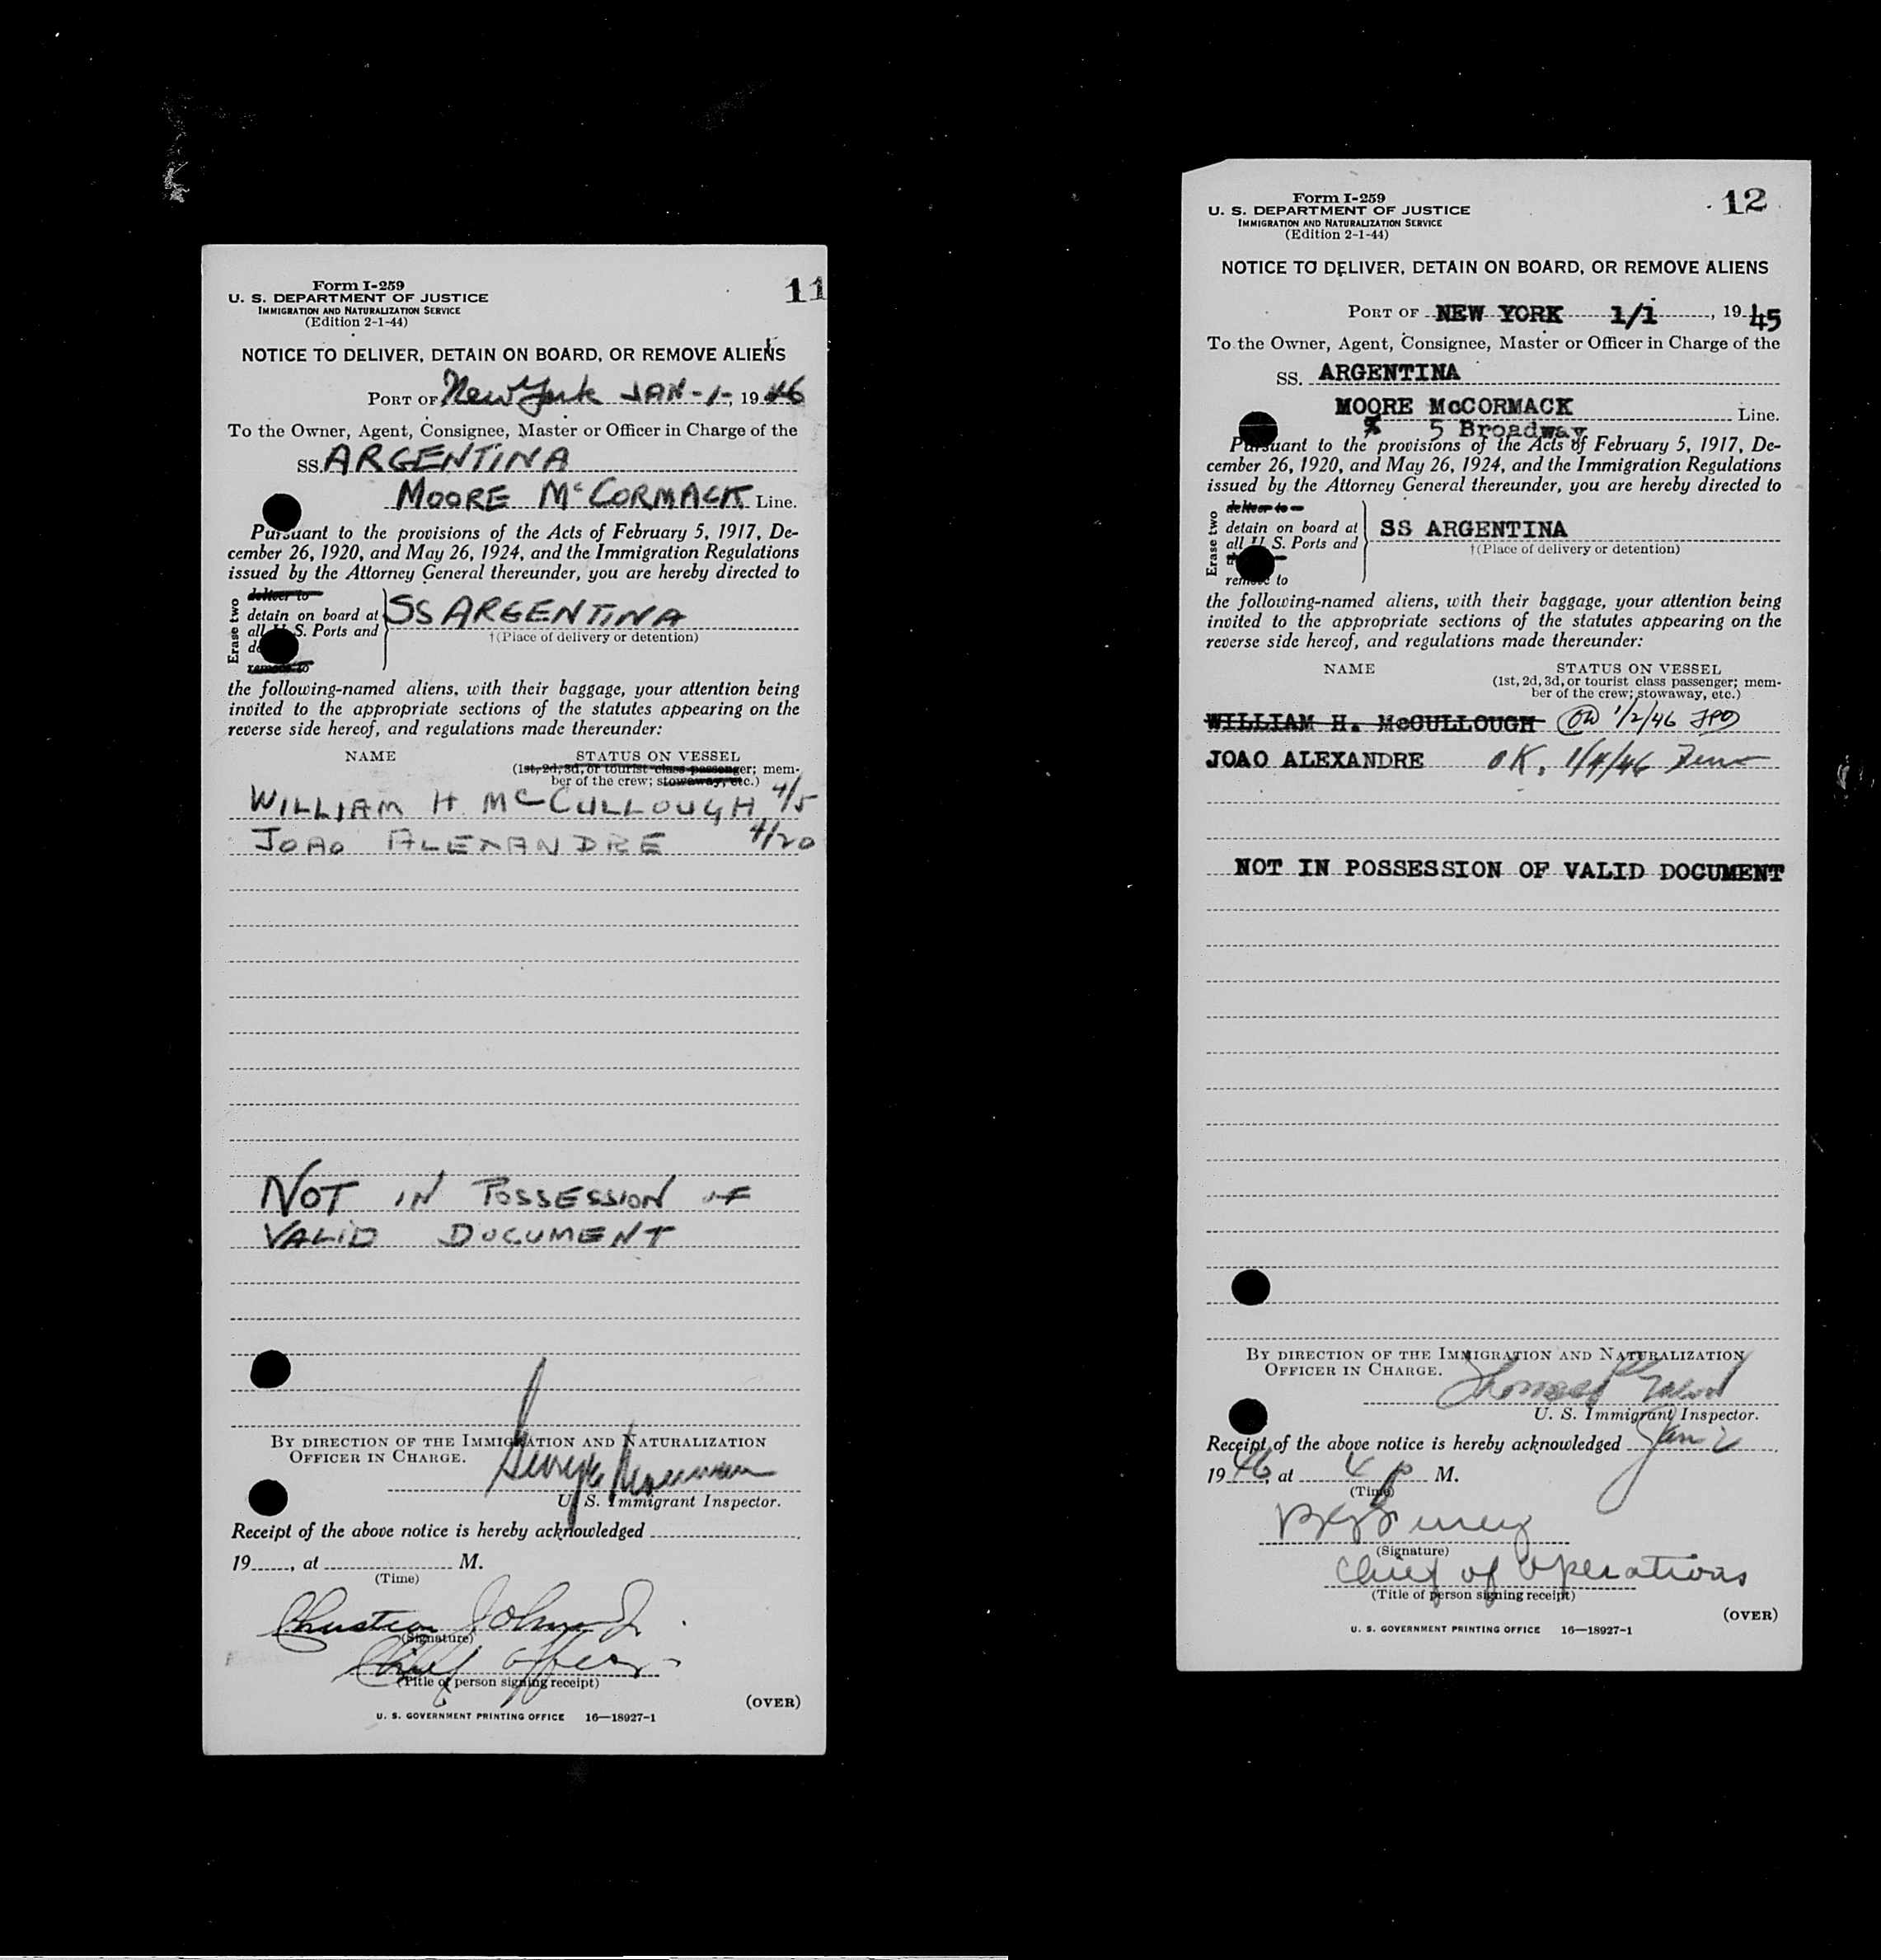 11
Form I-259
U. S. DEPARTMENT OF JUSTICE
IMMIGRATION AND NATURALIZATION SERVICE
(Edition 2-1-44)
NOTICE TO DELIVER, DETAIN ON BOARD, OR REMOVE ALIENS
PORT OF New York JAN-1-, 1946
To the Owner, Agent, Consignee, Master or Officer in Charge of the
SS. ARGENTINA
MOORE McCORMACK Line.
Pursuant to the provisions of the Acts of February 5, 1917, De-
cember 26, 1920, and May 26, 1924, and the Immigration Regulations
issued by the Attorney General thereunder, you are hereby directed to
Erase two
deliver to
detain on board at
all U. S. Ports and
remove to
SS ARGENTINA
†(Place of delivery or detention)
the following-named aliens, with their baggage, your attention being
invited to the appropriate sections of the statutes appearing on the
reverse side hereof, and regulations made thereunder:
NAME STATUS ON VESSEL
(1st, 2d, 3d, or tourist class passenger; mem-
ber of the crew; stowaway, etc.)
WILLIAM H. McCULLOUGH 4/5
JOAO ALEXANDRE 4/20
NOT IN POSSESSION OF
VALID DOCUMENT
BY DIRECTION OF THE IMMIGRATION AND NATURALIZATION
OFFICER IN CHARGE.
George
U. S. Immigrant Inspector.
Receipt of the above notice is hereby acknowledged
19, at M.
(Time)
(Signature)
Chief Officer
(Title of person signing receipt)
(OVER)
U. S. GOVERNMENT PRINTING OFFICE 16—18927-1
12
Form I-259
U. S. DEPARTMENT OF JUSTICE
IMMIGRATION AND NATURALIZATION SERVICE
(Edition 2-1-44)
NOTICE TO DELIVER, DETAIN ON BOARD, OR REMOVE ALIENS
PORT OF NEW YORK 1/1, 1945
To the Owner, Agent, Consignee, Master or Officer in Charge of the
SS. ARGENTINA
MOORE McCORMACK Line.
5 Broadway
Pursuant to the provisions of the Acts of February 5, 1917, De-
cember 26, 1920, and May 26, 1924, and the Immigration Regulations
issued by the Attorney General thereunder, you are hereby directed to
Erase two
deliver to
detain on board at
all U. S. Ports and
remove to
SS ARGENTINA
†(Place of delivery or detention)
the following-named aliens, with their baggage, your attention being
invited to the appropriate sections of the statutes appearing on the
reverse side hereof, and regulations made thereunder:
NAME STATUS ON VESSEL
(1st, 2d, 3d, or tourist class passenger; mem-
ber of the crew; stowaway, etc.)
WILLIAM H. McCULLOUGH 1/2/46
JOAO ALEXANDRE OK, 1/4/46
NOT IN POSSESSION OF VALID DOCUMENT
BY DIRECTION OF THE IMMIGRATION AND NATURALIZATION
OFFICER IN CHARGE.
Thomas
U. S. Immigrant Inspector.
Receipt of the above notice is hereby acknowledged Jan 2
1946, at 4 p M.
(Time)
(Signature)
Chief of Operations
(Title of person signing receipt)
(OVER)
U. S. GOVERNMENT PRINTING OFFICE 16—18927-1